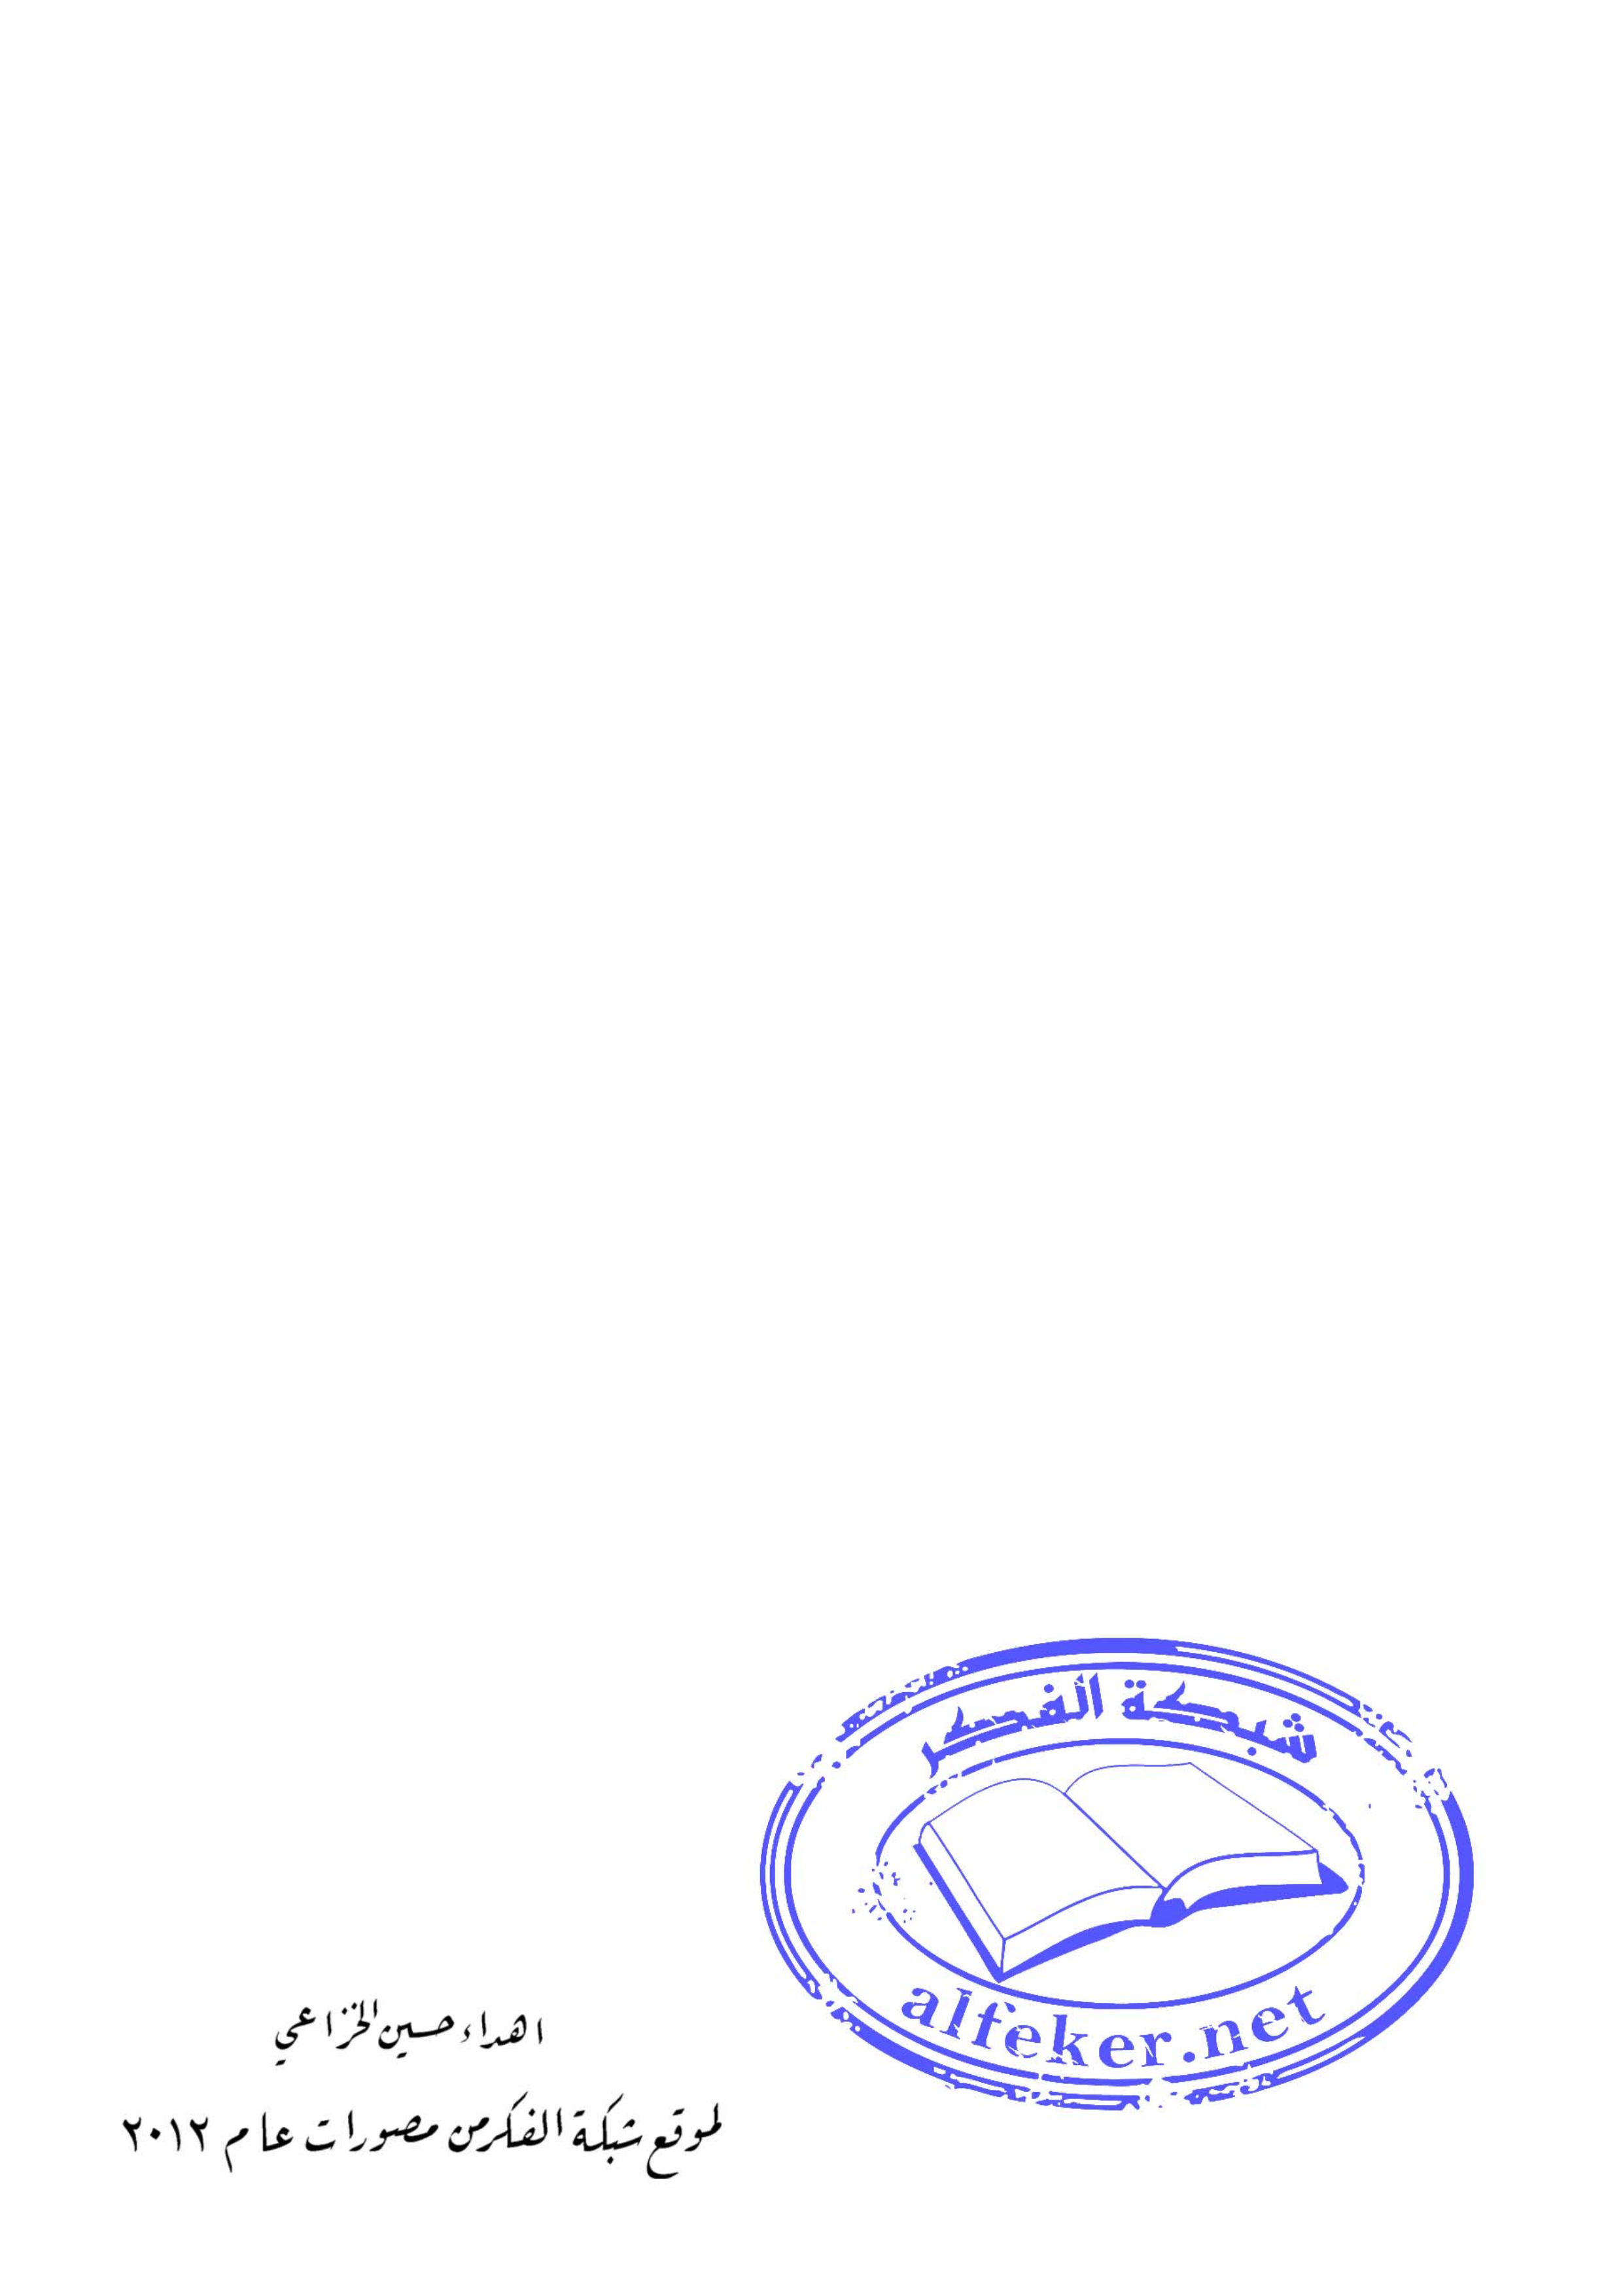 شبكة الفكر
alfeker.net
اهداء حسين الخزاعي
لموقع شبكة الفكر من مصورات عام ٢٠١٢